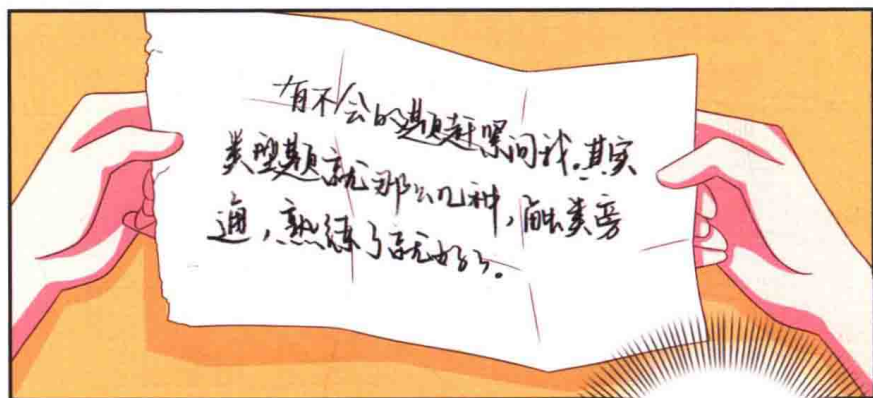 有不会的题赶紧问我。其实
类型题就那么几种，触类旁
通，熟练了就好了。